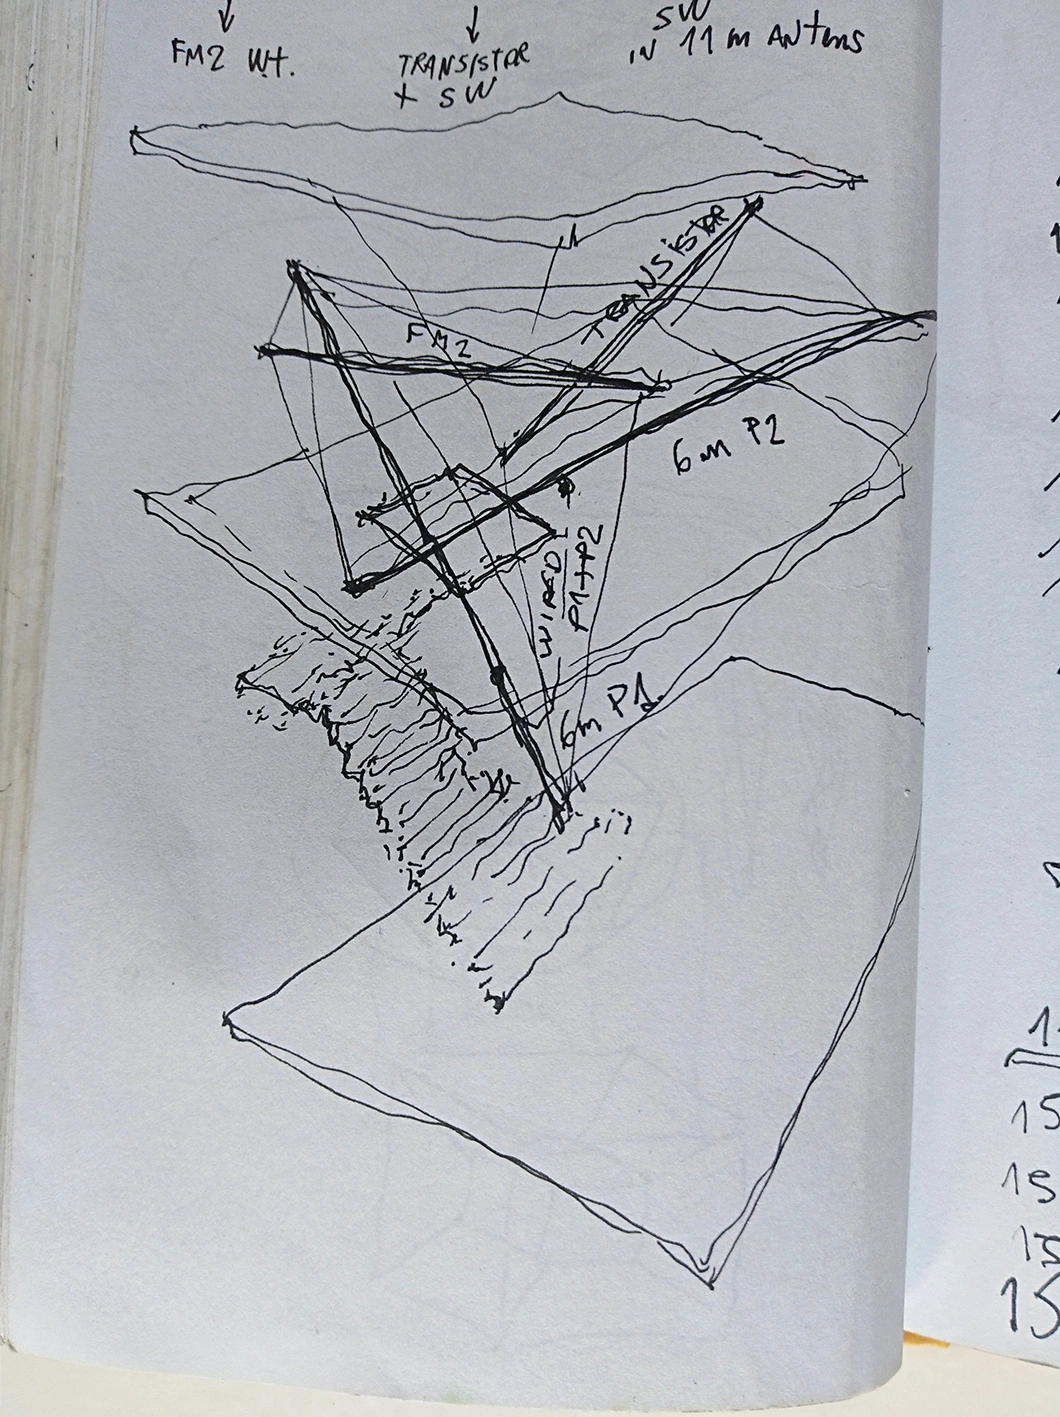 ↓ ↓ SW
FM2 Wt. TRANSISTOR IN 11 m ANTENS
+ SW
TRANSISTOR
FM2
6m P2
WIRED
P1+P2
6m P1
15
15
15